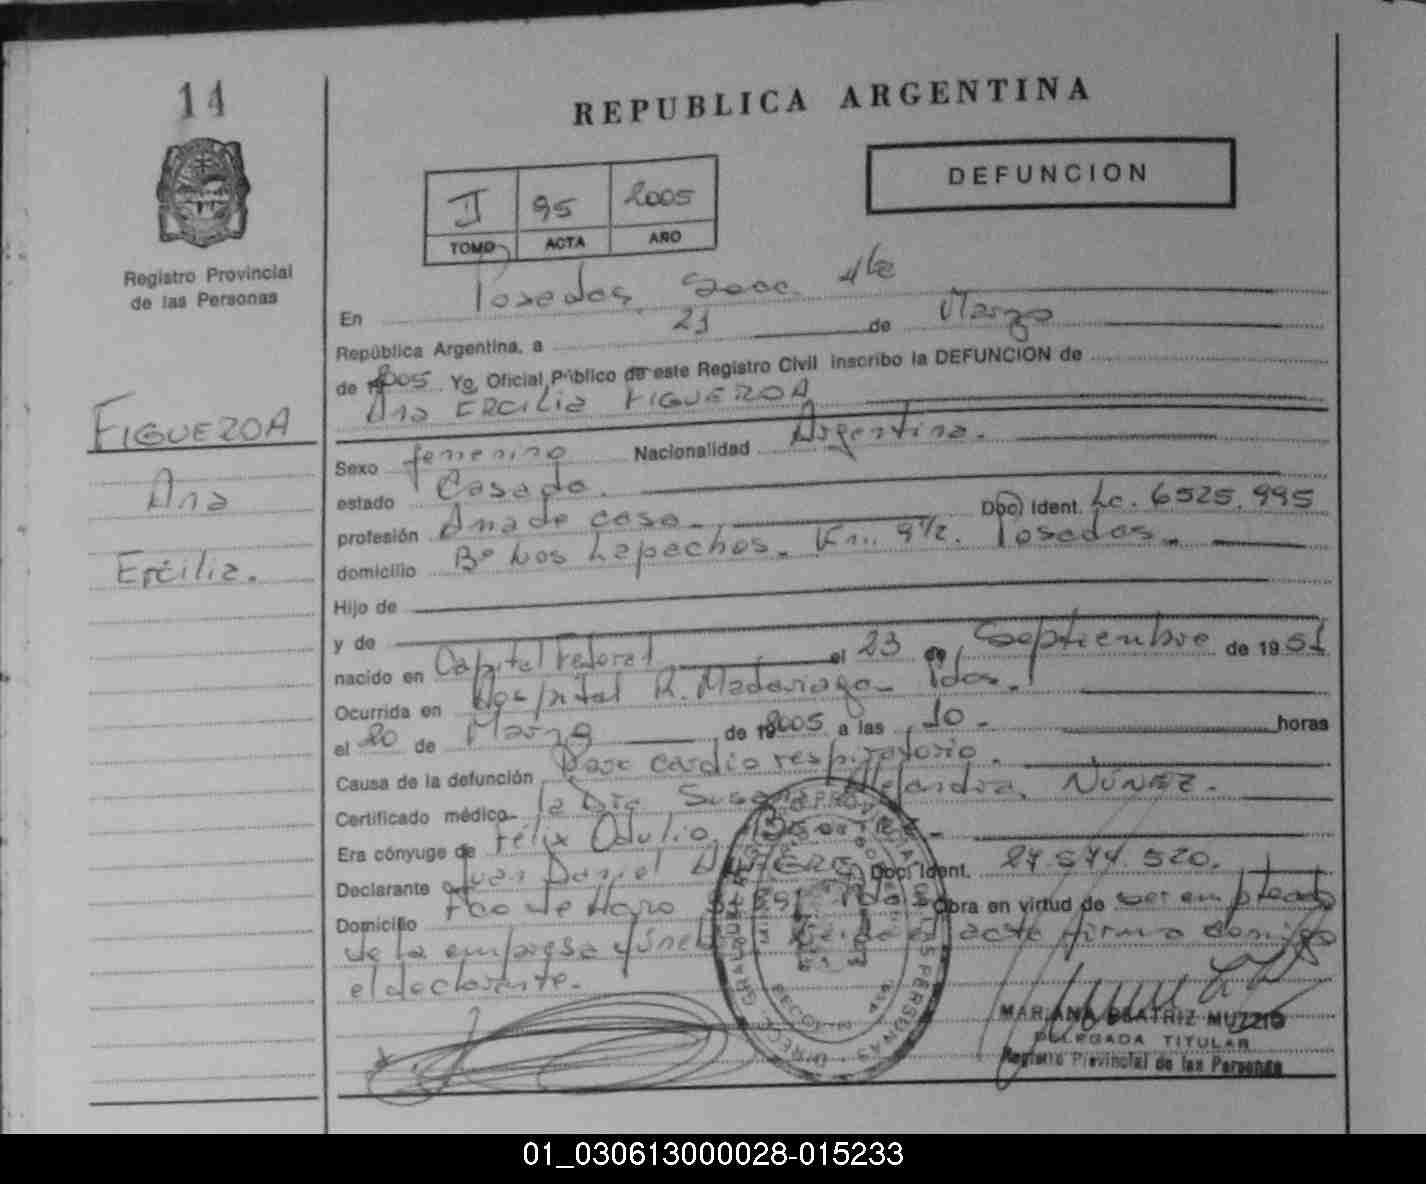 14
REPUBLICA ARGENTINA
DEFUNCION
II 95 2005
TOMO ACTA AÑO
Registro Provincial
de las Personas
En Posadas, Secc. 4ta
República Argentina, a 21 de Marzo
de 2005 Yo, Oficial Público de este Registro Civil inscribo la DEFUNCION de
Ana ERCILIA FIGUEROA
FIGUEROA
Ana
Ercilia.
Sexo femenino Nacionalidad Argentina.
estado Casada.
profesión Ama de casa. Doc. Ident. Lc. 6525.995
domicilio Bº Los Lapachos. Km. 9 1/2. Posadas.
Hijo de
y de
nacido en Capital Federal el 23 de Septiembre de 1951
Ocurrida en Hospital R. Madariaga Pdas.
el 20 de Marzo de 2005 a las 10 horas
Causa de la defunción Paro cardio respiratorio.
Certificado médico la Dra Susana Alejandra NÚÑEZ.
Era cónyuge de Félix Odulio
Declarante Juan Daniel Doc. Ident. 27.574.520.
Domicilio Fco de Haro Pdas Obra en virtud de ser empleado
de la empresa fúnebre acta firma conmigo
el declarante.
MARIANA BEATRIZ MUZZIO
DELEGADA TITULAR
Registro Provincial de las Personas
01_030613000028-015233